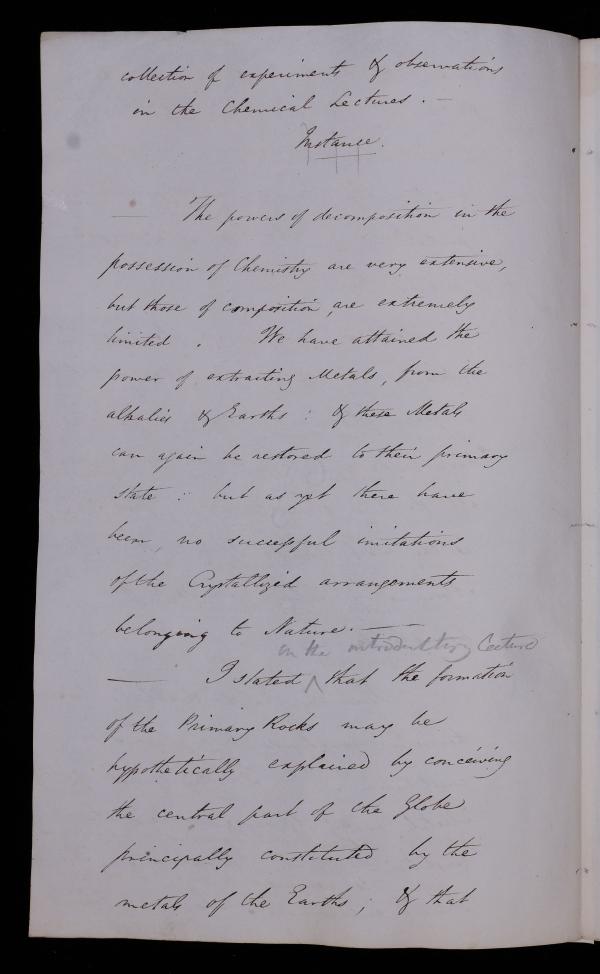 collection of experiments & observations
in the Chemical Lectures. —
Instance.
— The powers of decomposition in the
possession of Chemistry are very extensive,
but those of composition, are extremely
limited. We have attained the
power of extracting Metals, from the
alkalies & Earths: & these Metals
can again be restored to their primary
state: but as yet there have
been, no successful imitations
of the Crystallized arrangements
belonging to Nature. —
in the introductory Lecture
— I stated ^ that the formation
of the Primary Rocks may be
hypothetically explained by conceiving
the central part of the Globe
principally constituted by the
metals of the Earths; & that